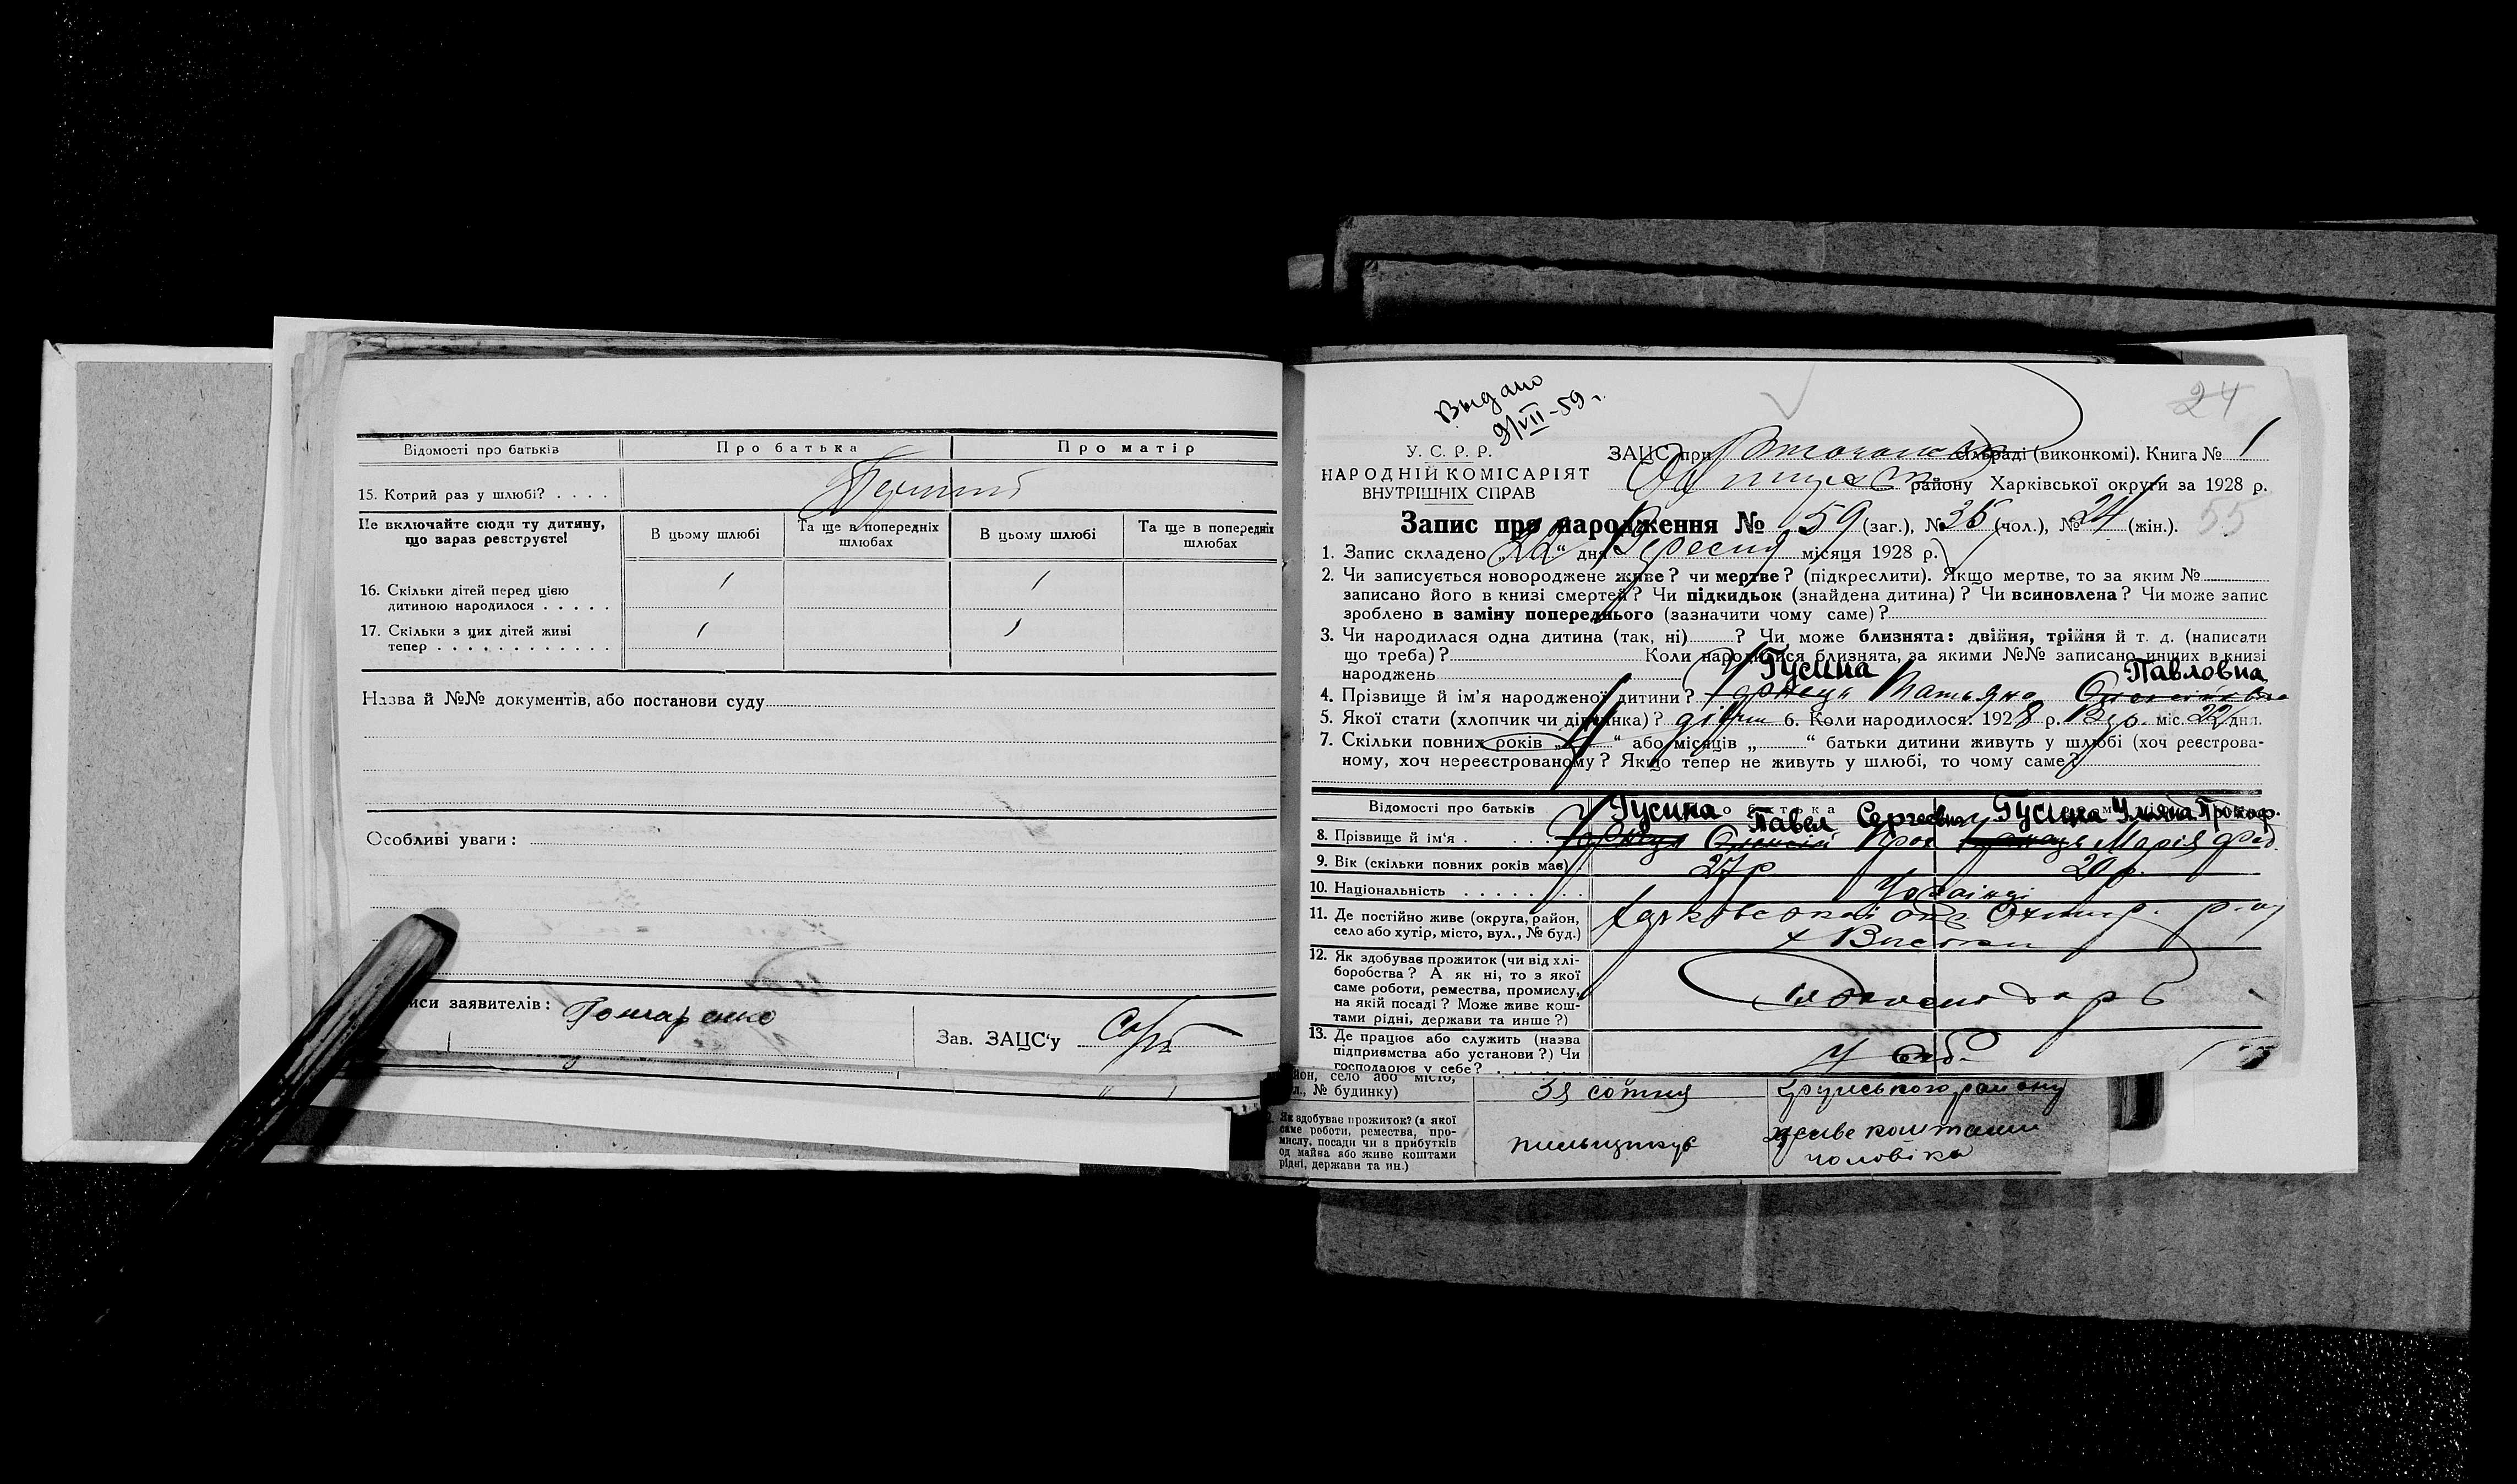 Відомості про батьків
Про батька
Про матір
15. Котрий раз у шлюбі? . . . .
Не включайте сюди ту дитину,
що зараз реєструєте!
В цьому шлюбі
Та ще в попередніх
шлюбах
В цьому шлюбі
Та ще в попередніх
шлюбах
16. Скільки дітей перед цією
дитиною народилося . . . . .
1
1
17. Скільки з цих дітей живі
тепер . . . . . . . . . . . .
1
1
Назва й №№ документів, або постанови суду
Особливі уваги:
иси заявителів: Гончаренко
Зав. ЗАЦС'у
Выдано
9/VII-59 г.
24
У. С. Р. Р.
НАРОДНІЙ КОМІСАРІЯТ
ВНУТРІШНІХ СПРАВ
ЗАЦС при сільраді (виконкомі). Книга № 1
району Харківської округи за 1928 р.
55
Запис про народження № 59 (заг.), № 36 (чол.), № 24 (жін.).
1. Запис складено „22“ дня Вересня місяця 1928 р.
2. Чи записується новороджене живе? чи мертве? (підкреслити). Якщо мертве, то за яким №
записано його в книзі смертей? Чи підкидьок (знайдена дитина)? Чи всиновлена? Чи може запис
зроблено в заміну попереднього (зазначити чому саме)?
3. Чи народилася одна дитина (так, ні) ? Чи може близнята: двійня, трійня й т. д. (написати
що треба)? Коли народилися близнята, за якими №№ записано инших в книзі
народжень
Гусина Павловна
4. Прізвище й ім'я народженої дитини? Татьяна
5. Якої стати (хлопчик чи дівчинка)? дівчин 6. Коли народилося: 1928 р. Вер. міс. 22 дня.
7. Скільки повних років „ “ або місяців „ “ батьки дитини живуть у шлюбі (хоч реєстрова-
ному, хоч нереєстрованому? Якщо тепер не живуть у шлюбі, то чому саме?
Відомості про батьків
Гусина Павел Сергеевич
Гусина Ульяна Прокоф.
8. Прізвище й ім'я . . . . . . Марія Фед.
9. Вік (скільки повних років має) 27 р. 20 р.
10. Національність . . . . . . . Українці
11. Де постійно живе (округа, район,
село або хутір, місто, вул., № буд.)
Харковської окр. Охтир. р-ну
х Високи
12. Як здобуває прожиток (чи від хлі-
боробства? А як ні, то з якої
саме роботи, ремества, промислу,
на якій посаді? Може живе кош-
тами рідні, держави та инше?)
13. Де працює або служить (назва
підприємства або установи?) Чи
господарює у себе? . . . . . .
У себ
йон, село або місто,
л., № будинку)
3я сотня
жрунського району
Як здобуває прожиток? (з якої
саме роботи, ремества, про-
мислу, посади чи з прибутків
од майна або живе коштами
рідні, держави та ин.)
пильщикує
живе коштами
чоловіка